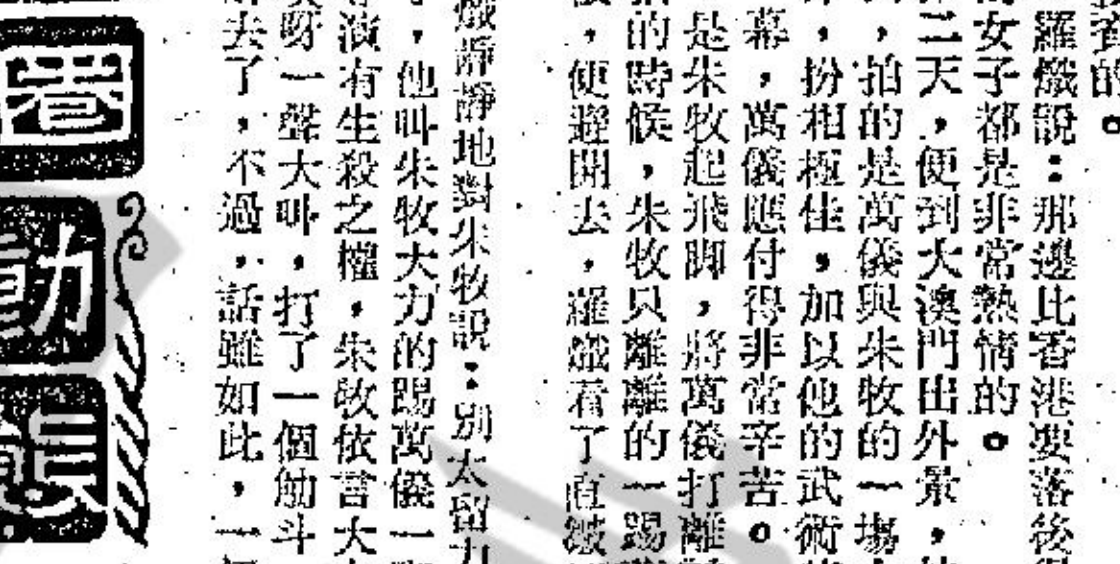 的。
羅熾說：那邊比香港要落後
女子都是非常熱情的。
二天，便到大澳門出外景，
，拍的是萬儀與朱牧的一場
，扮相極佳，加以他的武術
幕，萬儀應付得非常辛苦。
是朱牧起飛脚，將萬儀打離
的時候，朱牧只離離的一踢
，便避開去，羅熾看了直皺
熾靜靜地對朱牧說：別太留力
，他叫朱牧大力的踢萬儀一
演有生殺之權，朱牧依言大
呀一聲大叫，打了一個觔斗
去了，不過，話雖如此，一
動